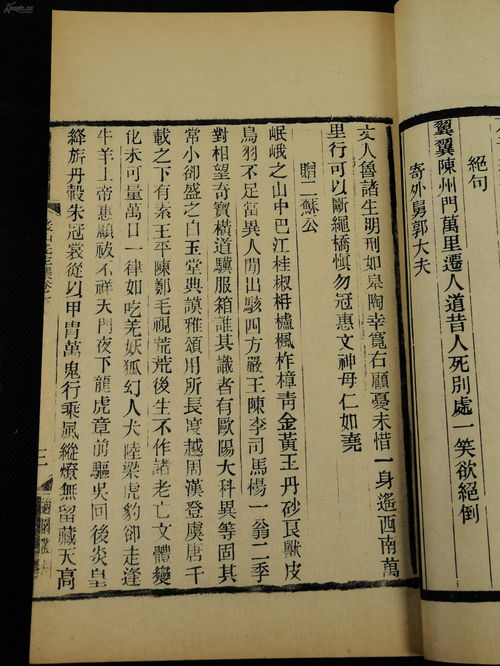 絕句
翼翼陳州門萬里遷人道昔人死別處一笑欲絕倒
寄外舅郭大夫
丈人魯諸生明刑如皐陶幸寬右顧憂未惜一身遙西南萬
里行可以斷繩橋愼勿冠惠文神母仁如堯
贈二蘇公
岷峨之山中巴江桂椒柟櫨楓柞樟靑金黃玉丹砂良獸皮
鳥羽不足當異人閒出駭四方嚴王陳李司馬楊一翁二季
對相望奇寶橫道驥服箱誰其識者有歐陽大科異等固其
常小卻盛之白玉堂典謨雅頌用所長度越周漢登虞唐千
載之下有素王平陳鄭毛視荒荒後生不作諸老亡文體變
化未可量萬口一律如吃羌妖狐幻人犬陸梁虎豹卻走逢
牛羊上帝惠顧祓不祥天門夜下龍虎章前驅吳回後炎皇
絳旂丹轂朱冠裳從以甲胄萬鬼行乘風縱燎無留藏天高
三